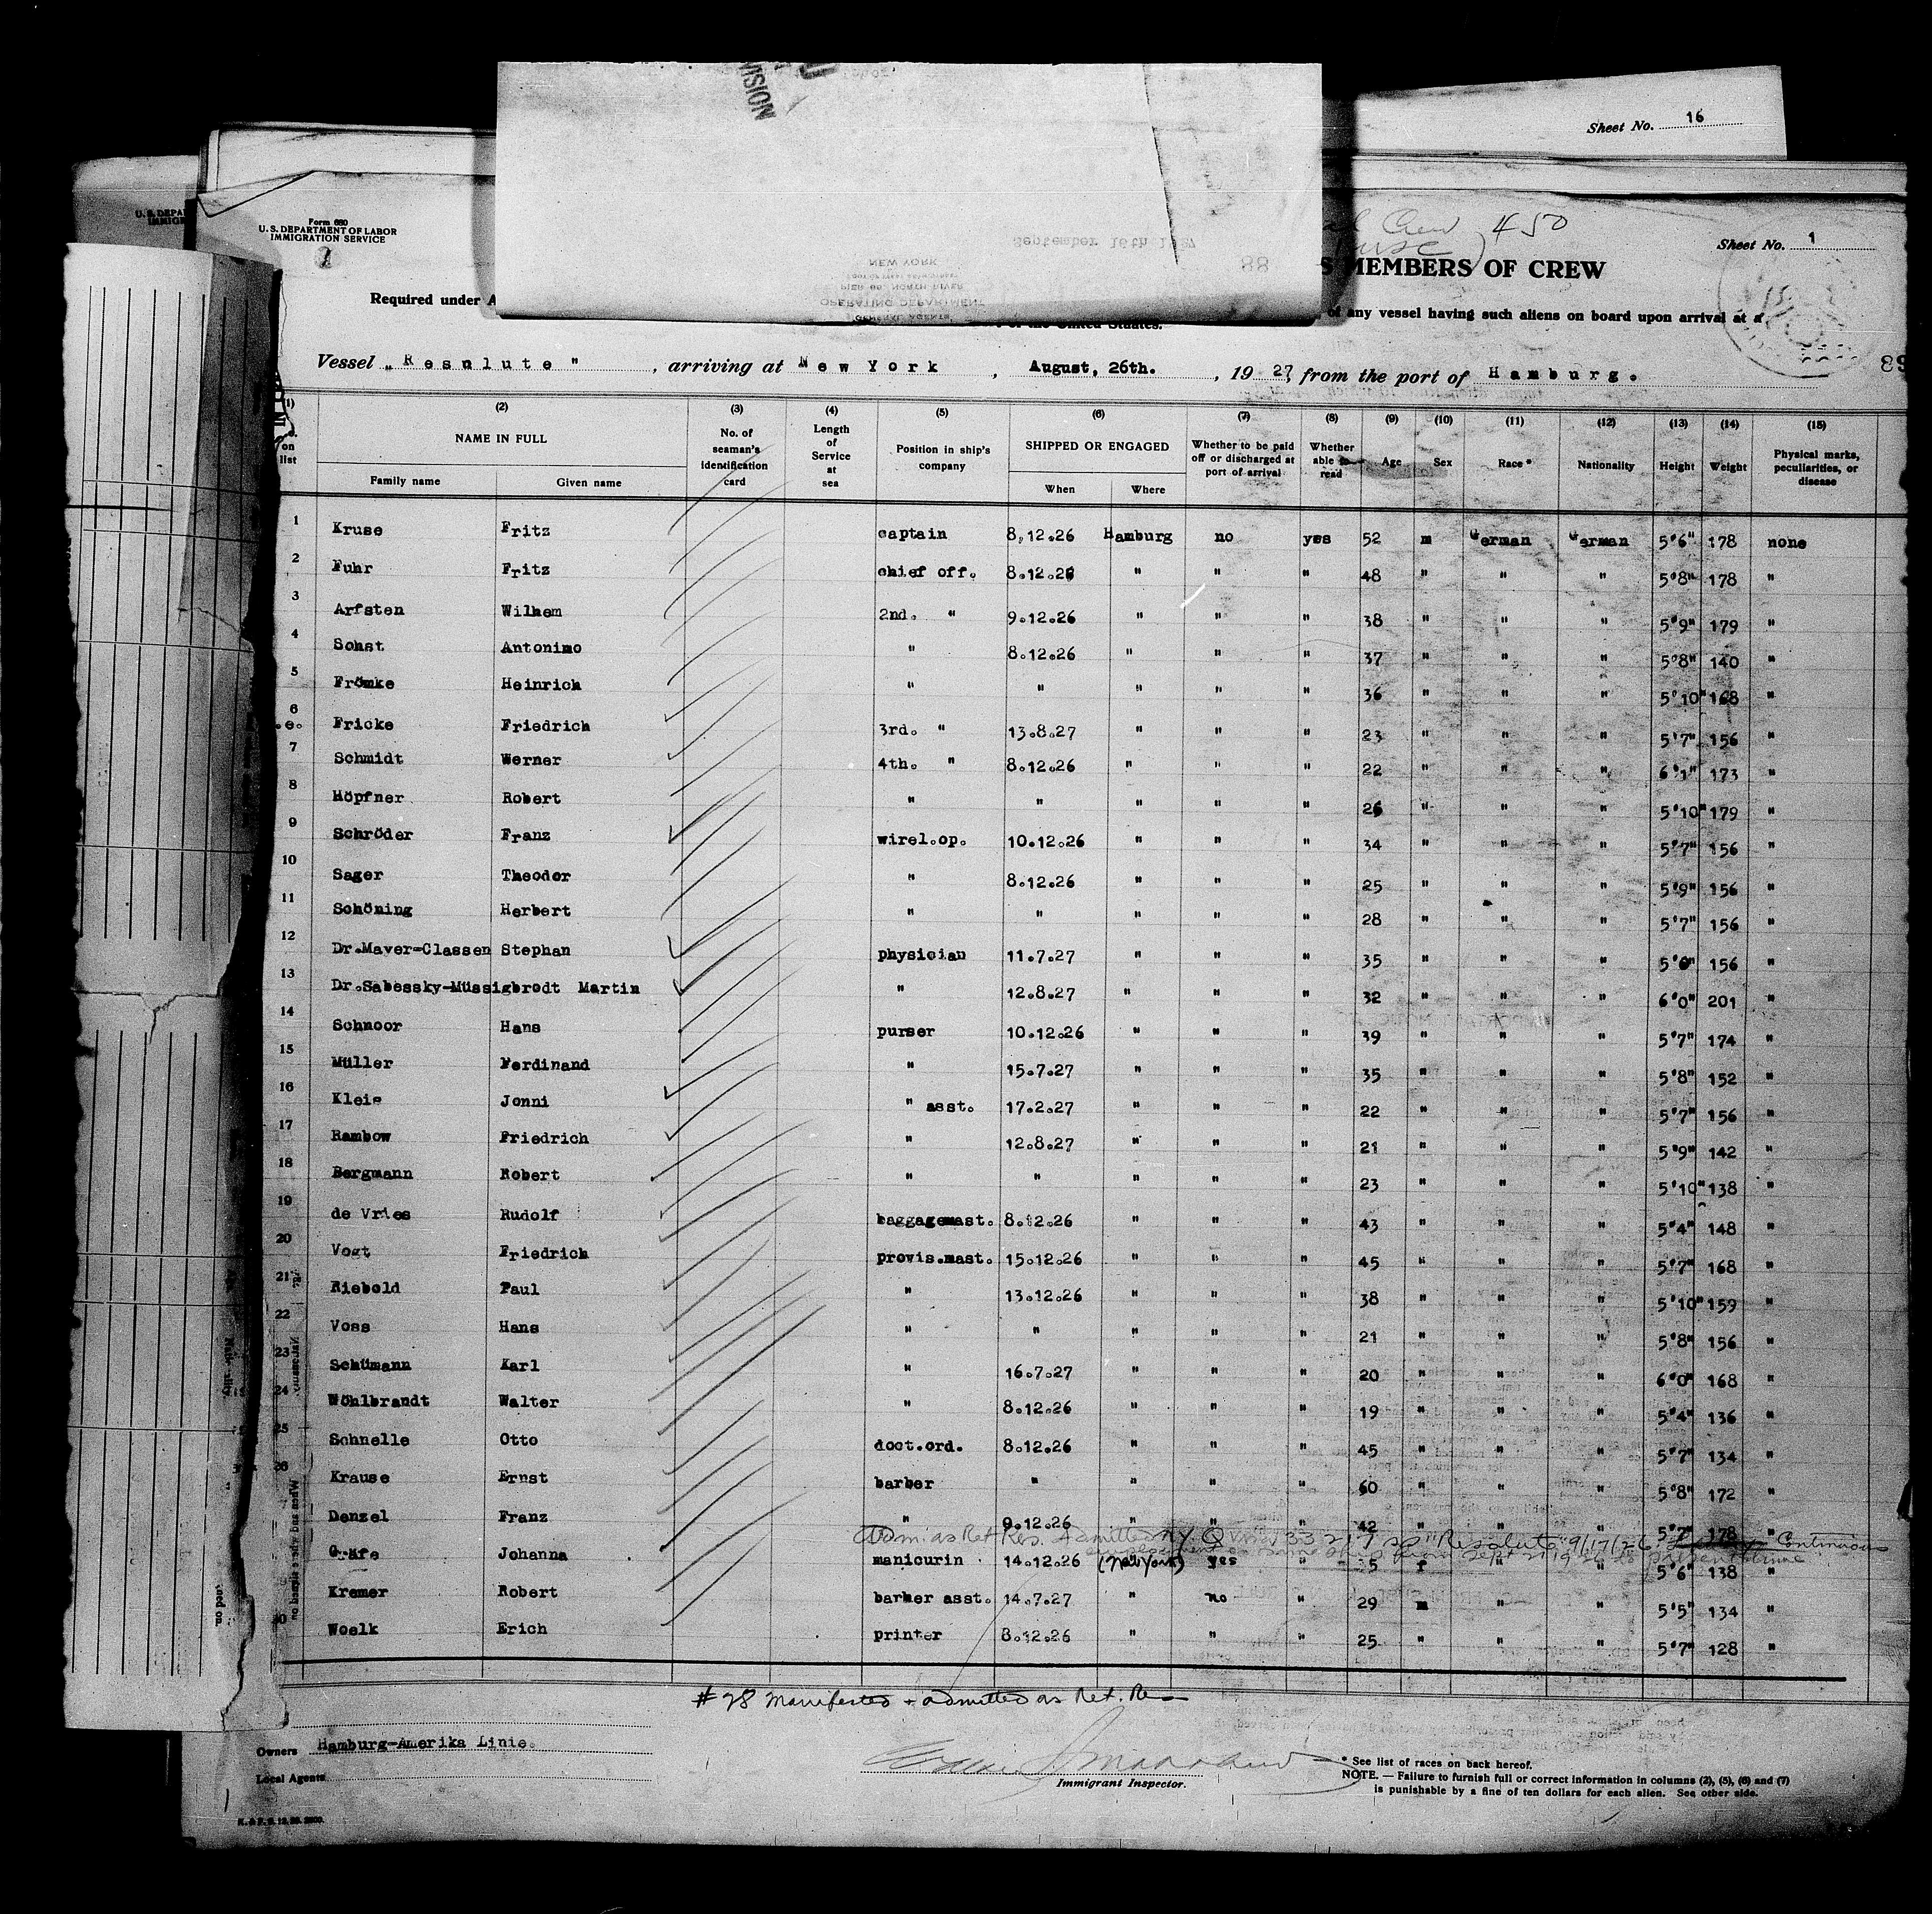 VISION
Sheet No. 16
September 16th 1927
88
NEW YORK
PIER 86, NORTH RIVER
OPERATING DEPARTMENT
GENERAL AGENTS
Form 680
U. S. DEPARTMENT OF LABOR
IMMIGRATION SERVICE
Crew 450
Sheet No. 1
S MEMBERS OF CREW
Required under A
of any vessel having such aliens on board upon arrival at a
of the United States.
Vessel „Resolute", arriving at New York, August, 26th., 1927, from the port of Hamburg.
(1) (2) (3) (4) (5) (6) (7) (8) (9) (10) (11) (12) (13) (14) (15)
on list NAME IN FULL Family name Given name No. of seaman's identification card Length of Service at sea Position in ship's company SHIPPED OR ENGAGED When Where Whether to be paid off or discharged at port of arrival Whether able read Age Sex Race* Nationality Height Weight Physical marks, peculiarities, or disease
1 Kruse Fritz captain 8.12.26 Hamburg no yes 52 m German German 5'6" 178 none
2 Fuhr Fritz chief off. 8.12.26 " " " 48 " " " 5'8" 178 "
3 Arfsten Wilhem 2nd. " 9.12.26 " " " 38 " " " 5'9" 179 "
4 Sohst Antonimo " 8.12.26 " " " 37 " " " 5'8" 140 "
5 Frömke Heinrich " " " " " 36 " " " 5'10" 168 "
6 Fricke Friedrich 3rd. " 13.8.27 " " " 23 " " " 5'7" 156 "
7 Schmidt Werner 4th. " 8.12.26 " " " 22 " " " 6'1" 173 "
8 Höpfner Robert " " " " " 26 " " " 5'10" 179 "
9 Schröder Franz wirel.op. 10.12.26 " " " 34 " " " 5'7" 156 "
10 Sager Theodor " 8.12.26 " " " 25 " " " 5'9" 156 "
11 Schöning Herbert " " " " " 28 " " " 5'7" 156 "
12 Dr.Mayer-Classen Stephan physician 11.7.27 " " " 35 " " " 156 "
13 Dr.Sabessky-Müssigbrodt Martin " 12.8.27 " " " 32 " " " 6'0" 201 "
14 Schnoor Hans purser 10.12.26 " " " 39 " " " 5'7" 174 "
15 Müller Ferdinand " 15.7.27 " " " 35 " " " 5'8" 152 "
16 Kleis Jonni " asst. 17.2.27 " " " 22 " " " 5'7" 156 "
17 Rambow Friedrich " 12.8.27 " " " 21 " " " 5'9" 142 "
18 Bergmann Robert " " " " " 23 " " " 5'10" 138 "
19 de Vries Rudolf baggagemast. 8.12.26 " " " 43 " " " 5'4" 148 "
20 Vogt Friedrich provis.mast. 15.12.26 " " " 45 " " " 5'7" 168 "
21 Riebold Paul " 13.12.26 " " " 38 " " " 5'10" 159 "
22 Voss Hans " " " " " 21 " " " 5'8" 156 "
23 Schümann Karl " 16.7.27 " " " 20 " " " 6'0" 168 "
24 Wöhlbrandt Walter " 8.12.26 " " " 19 " " " 5'4" 136 "
25 Schnelle Otto doct.ord. 8.12.26 " " " 45 " " " 5'7" 134 "
26 Krause Ernst barber " " " " 60 " " " 5'8" 172 "
Denzel Franz " 9.12.26 " " " 42 " " " 5'7" 178 "
Adm as Ret Res. Admitted NY 33217 ss "Resolute" 9/17/26 Continuous
employment on same ship from Sept 21 1926 to present time
Gräfe Johanna manicurin 14.12.26 (New York) yes " f " " 5'6" 138 "
Kremer Robert barber asst. 14.7.27 " no " 29 m " " 5'5" 134 "
30 Woelk Erich printer 8.12.26 " " " 25 " " " 5'7" 128 "
#28 Manifested + admitted as Ret. Res
Owners Hamburg-Amerika Linie.
Local Agents
Immigrant Inspector.
* See list of races on back hereof.
NOTE. — Failure to furnish full or correct information in columns (2), (5), (6) and (7)
is punishable by a fine of ten dollars for each alien. See other side.